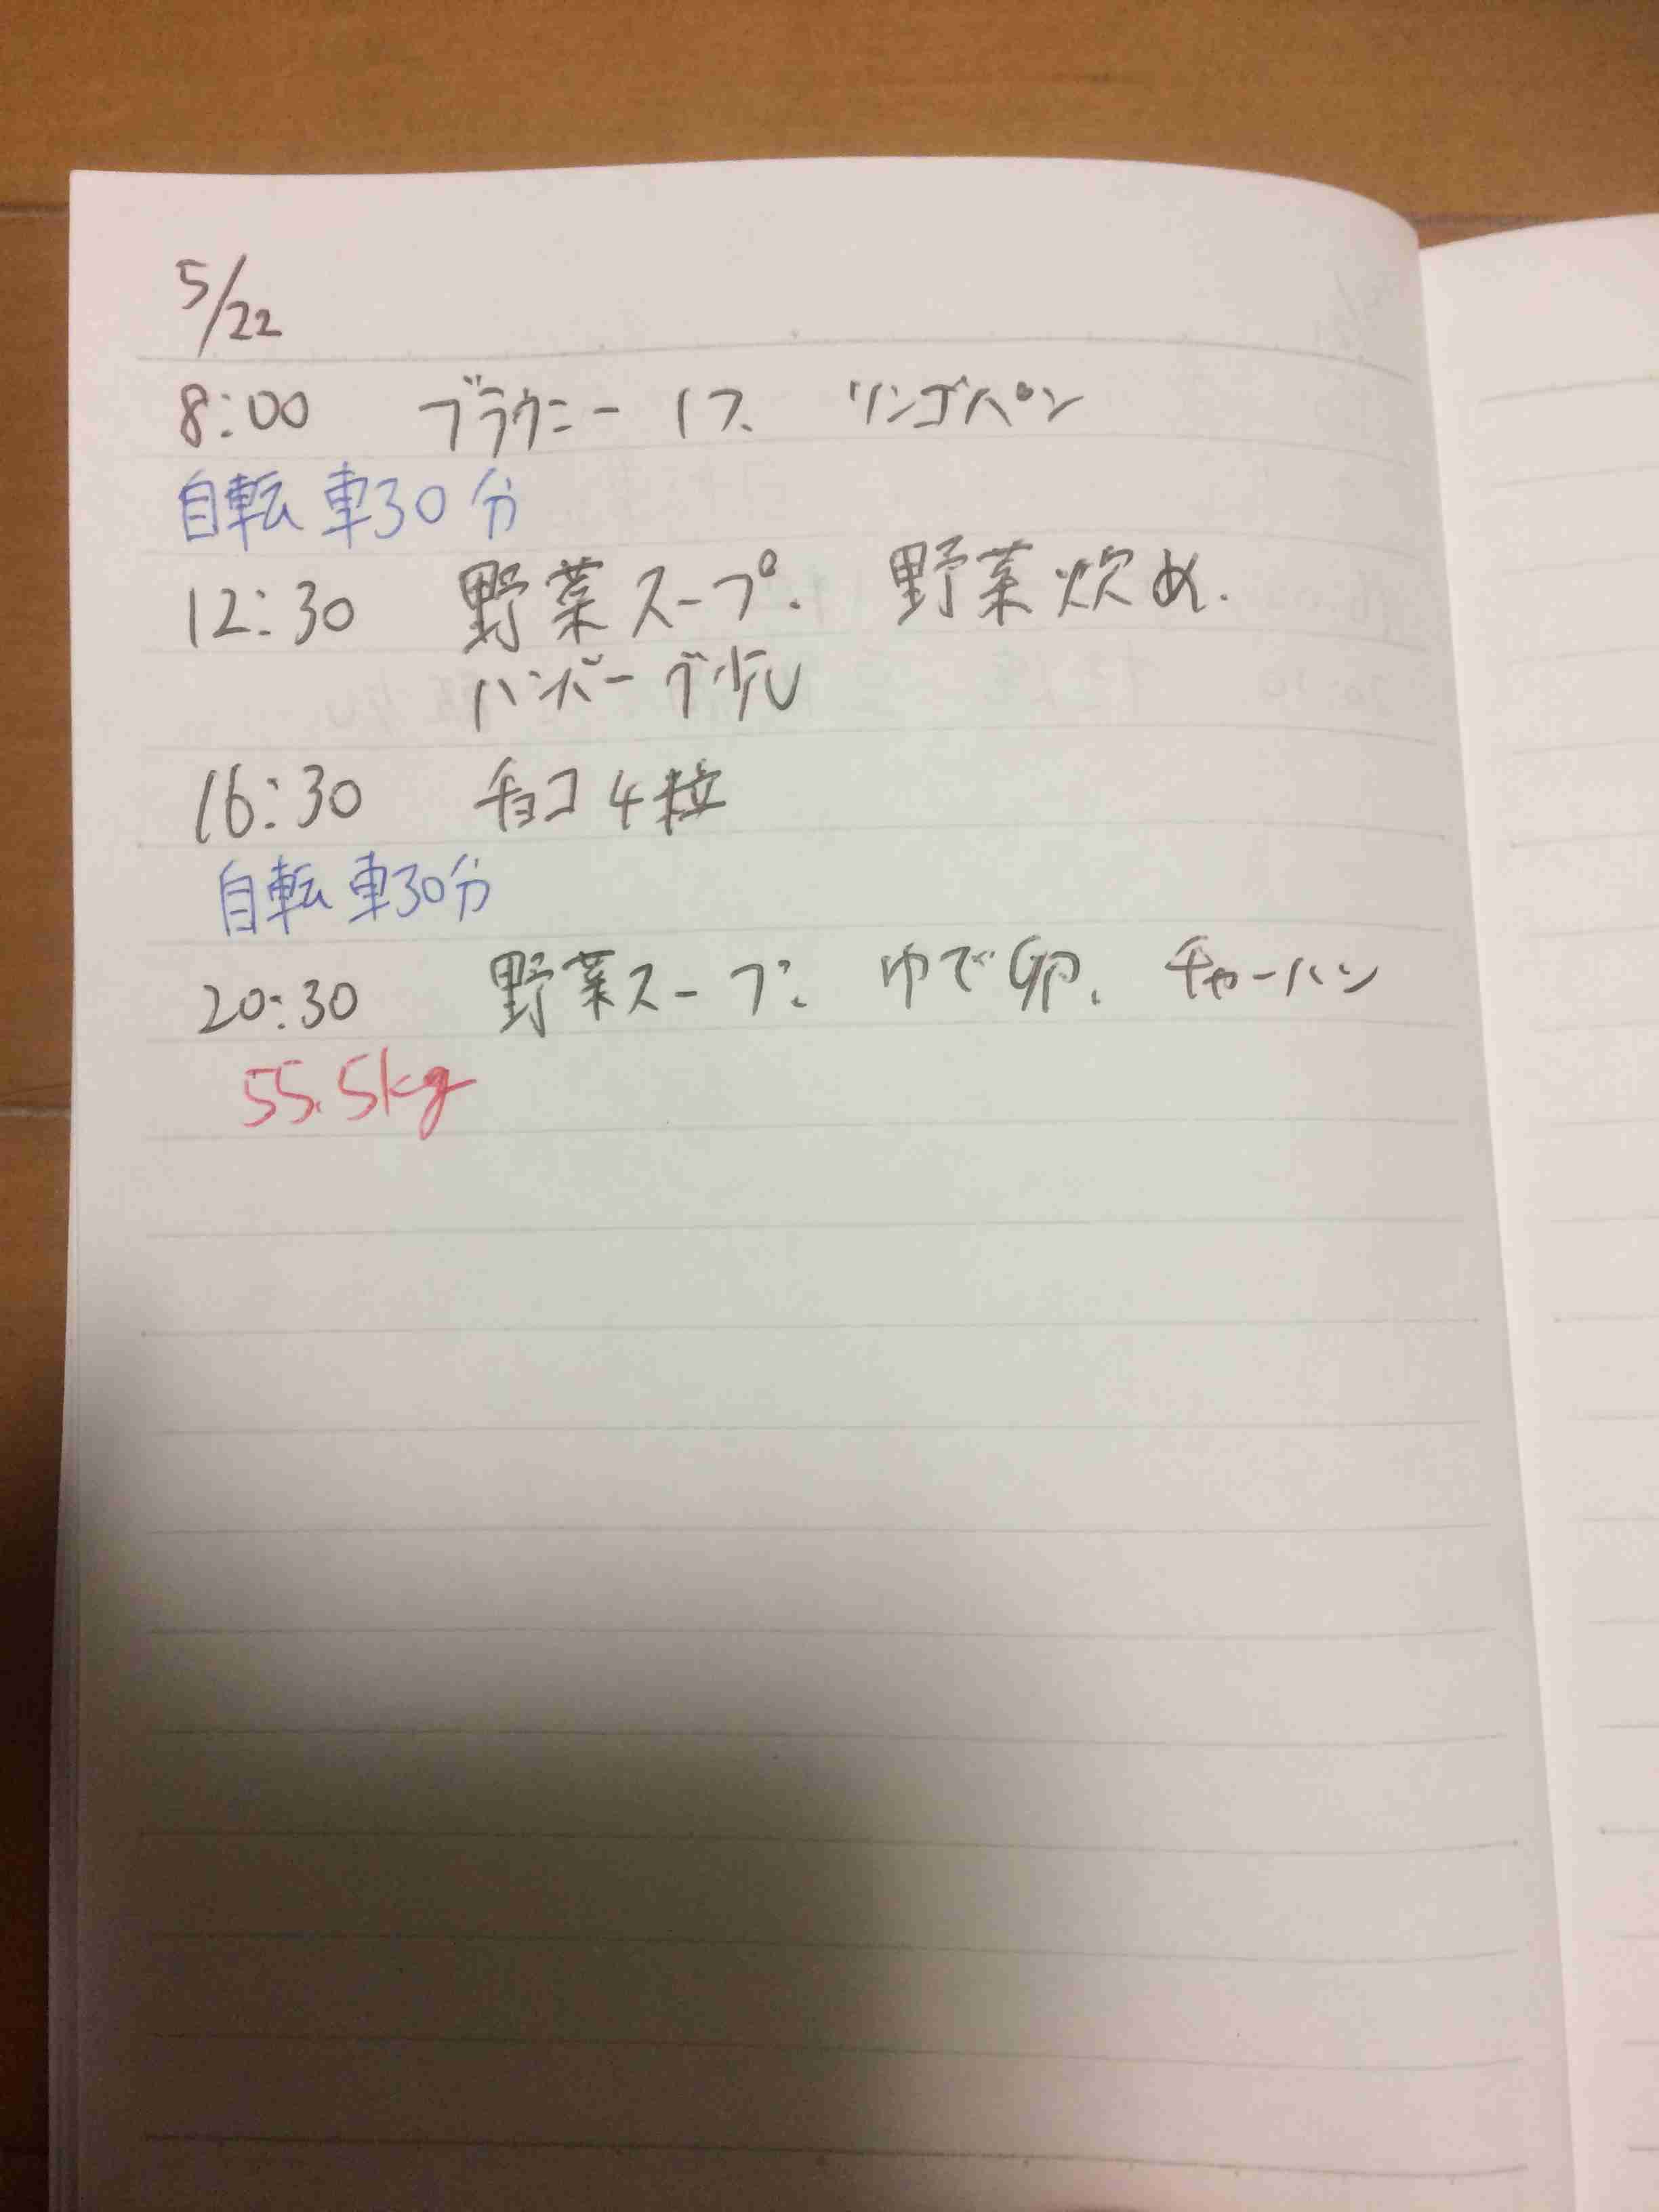 5/22
8:00 ブラウニー 1つ、 リンゴパン
自転車30分
12:30 野菜スープ、 野菜炊め、
ハンバーグ少し
16:30 チョコ4粒
自転車30分
20:30 野菜スープ、 ゆで卵、 チャーハン
55.5kg